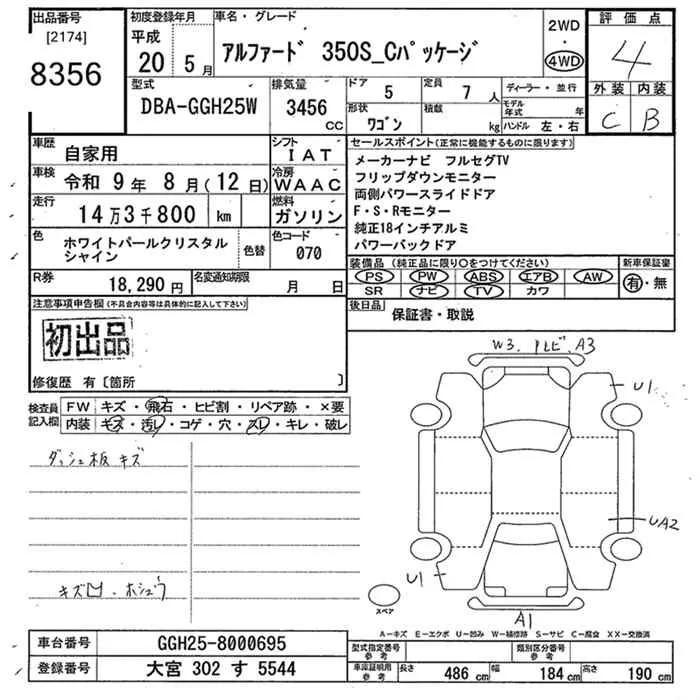 出品番号 [2174] 8356
初度登録年月 平成 20 5月
車名・グレード アルファード 350S_Cパッケージ
2WD・4WD
評価点 4
外装 内装
C B
型式 DBA-GGH25W
排気量 3456 CC
ドア 5
定員 7 人
形状 ワゴン
積載 kg
ディーラー・並行
モデル年式 年
ハンドル 左・右
車歴 自家用
シフト IAT
車検 令和 9年 8月(12日)
冷房 WAAC
走行 14万3千800 km
燃料 ガソリン
色 ホワイトパールクリスタルシャイン
色替
色コード 070
R券 18,290 円
名変通知期限 月 日
セールスポイント(正常に機能するものに限ります)
メーカーナビ フルセグTV
フリップダウンモニター
両側パワースライドドア
F・S・Rモニター
純正18インチアルミ
パワーバックドア
装備品(純正品に限り○をつけてください)
PS PW ABS エアB AW
SR ナビ TV カワ
新車保証書
有・無
後日品 保証書・取説
注意事項申告欄(不具合内容等は具体的に記入して下さい)
初出品
修復歴 有〔箇所 〕
検査員記入欄
FW キズ・飛石・ヒビ割・リペア跡・×要
内装 キズ・汚レ・コゲ・穴・スレ・キレ・破レ
ダッシュ板 キズ
W3. A3
U1
UA2
U1
A1
スペア
A-キズ E-エクボ U-凹み W-補修跡 S-サビ C-腐食 XX-交換済
車台番号 GGH25-8000695
登録番号 大宮 302 す 5544
型式指定番号 参考
類別区分番号 参考
車庫証明用 参考
長さ 486 cm 幅 184 cm 高さ 190 cm